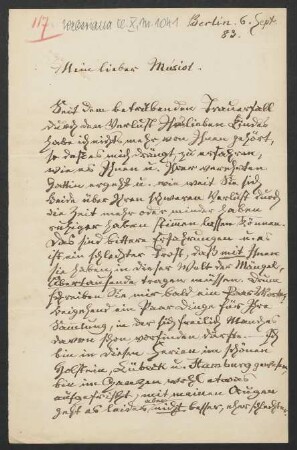 117.
Berlin. 6. Sept.
83.
Mein lieber Musiol.
Seit dem betrübenden Trauerfall
durch den Verlust Ihres lieben Kindes
habe ich nichts mehr von Ihnen gehört,
so daß es mich drängt zu erfahren,
wie es Ihnen u. Ihrer verehrten
Gattin ergeht u. wie weit Sie sich
Beide über Ihren schweren Verlust durch
die Zeit mehr oder minder haben
ruhiger stimmen lassen können.
Das sind bittere Erfahrungen u. es
ist ein schlechter Trost, daß mit Ihnen
sie haben, in dieser Welt der Mängel,
Übertausende tragen müssen. Drum
schreiben Sie mir bald ein Paar Worte,
beigehend ein Paar Dinge für Ihre
Samlung, in der sich freilich Manches
davon schon vorfinden dürfte. Ich
bin in diesen Ferien im schönen
Holstein, Lübeck u. Hamburg gewesen,
bin im Ganzen wohl etwas
aufgefrischt, mit meinen Augen
geht es leider aber nicht besser, eher schlechter.